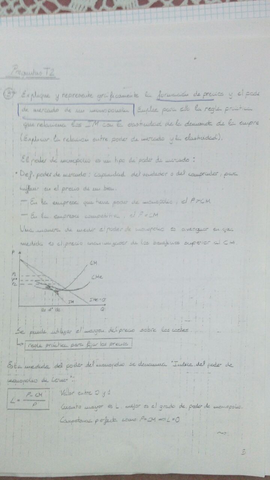 Preguntas T2
Explique y represente gráficamente la formación de precios y el poder
de mercado de un monopolista. Emplee para ello la regla práctica
que relaciona los IM con la elasticidad de la demanda de la empresa
(Explicar la relación entre poder de mercado y la elasticidad).
El poder de monopolio es un tipo de poder de mercado:
Def. poder de mercado: capacidad del vendedor o del comprador para
influir en el precio de un bien.
— En la empresa que tiene poder de monopolio: el P>CM
— En la empresa competitiva: el P=CM
Una manera de medir el poder de monopolio es averiguar en qué
medida es el precio maximizador de los beneficios superior al CM
P
CM
CMe
IM
Q
Se puede utilizar el margen del precio sobre los costes
↳ regla práctica para fijar los precios
Esta medida del poder del monopolio se denomina "Índice del poder de
monopolio de Lerner":
L = P-CM / P
Valor entre 0 y 1
Cuanto mayor es L mayor es el grado de poder de monopolio.
Competencia perfecta cuando P=CM → L=0